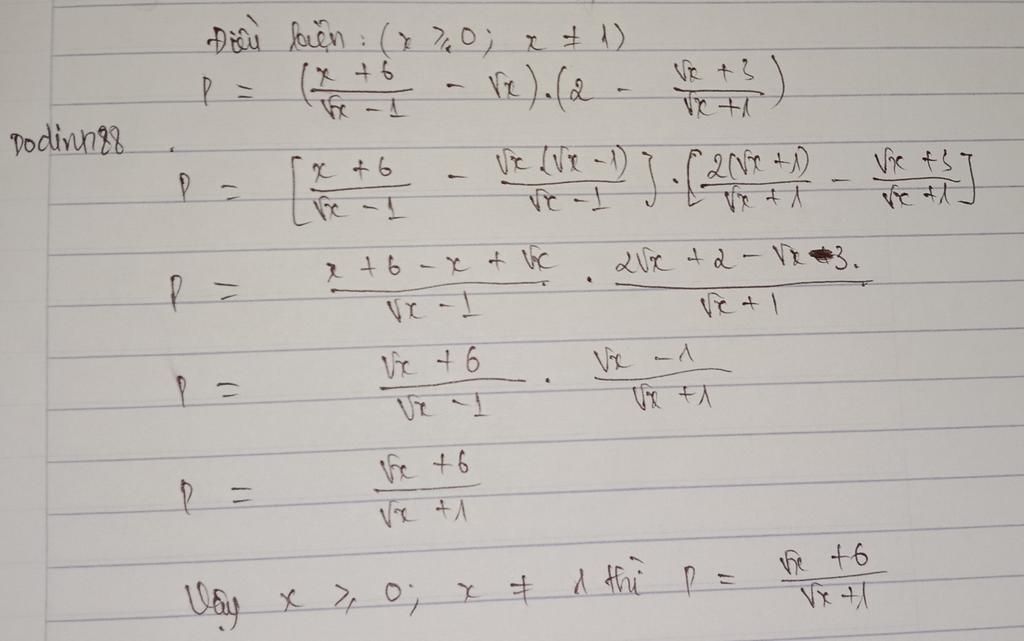 Điều kiện: (x ≥ 0; x ≠ 1)
P = (\frac{x + 6}{√x - 1} - √x).(2 - \frac{√x + 3}{√x + 1})
Dodinh88 .
P = [\frac{x + 6}{√x - 1} - \frac{√x.(√x - 1)}{√x - 1}].[\frac{2(√x + 1)}{√x + 1} - \frac{√x + 3}{√x + 1}]
P = \frac{x + 6 - x + √x}{√x - 1} . \frac{2√x + 2 - √x - 3.}{√x + 1}
P = \frac{√x + 6}{√x - 1} . \frac{√x - 1}{√x + 1}
P = \frac{√x + 6}{√x + 1}
Vậy x ≥ 0; x ≠ 1 thì P = \frac{√x + 6}{√x + 1}